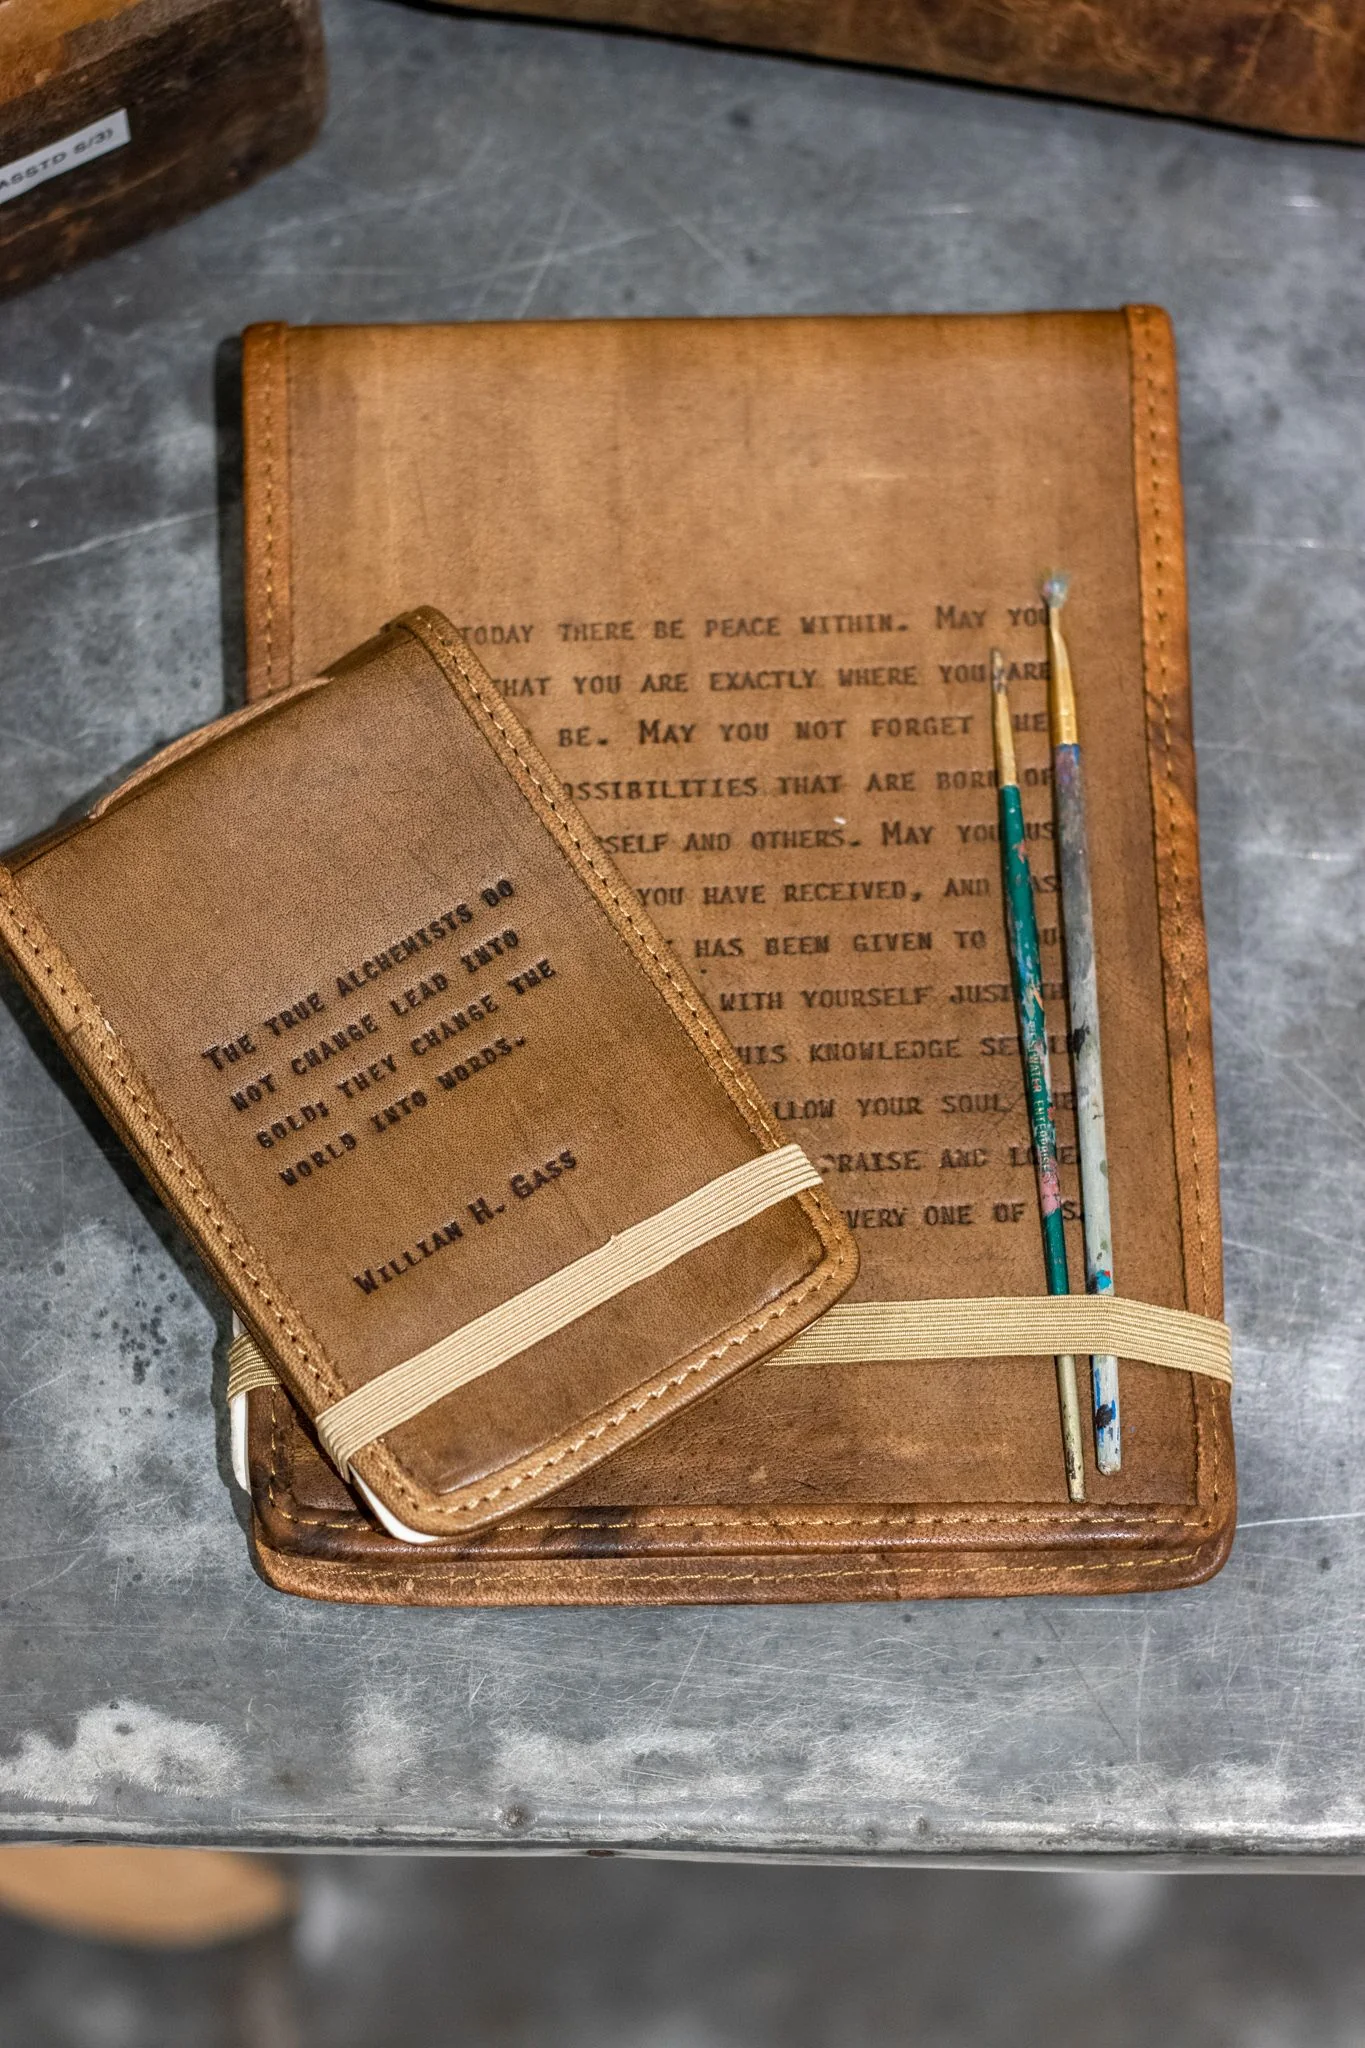 ASSTD S/3)
TODAY THERE BE PEACE WITHIN. MAY YOU
THAT YOU ARE EXACTLY WHERE YOU ARE
BE. MAY YOU NOT FORGET HE
OSSIBILITIES THAT ARE BORN OF
SELF AND OTHERS. MAY YOU US
YOU HAVE RECEIVED, AND AS
HAS BEEN GIVEN TO OU
WITH YOURSELF JUST TH
HIS KNOWLEDGE SE
LLOW YOUR SOUL HE
PRAISE AND LOVE
VERY ONE OF US.
THE TRUE ALCHEMISTS DO
NOT CHANGE LEAD INTO
GOLD; THEY CHANGE THE
WORLD INTO WORDS.
WILLIAM H. GASS
BESTWATER ENTERPRISES